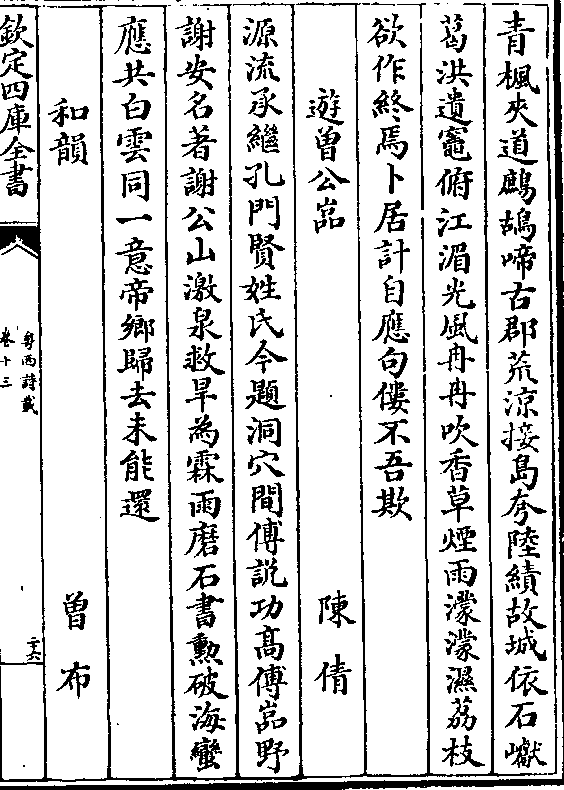 青楓夾道鷓鴣啼古郡荒涼接島夸陸績故城依石巘
葛洪遺竈俯江湄光風冉冉吹香草煙雨濛濛濕荔枝
欲作終焉卜居計自應句僂不吾欺
遊曾公嵓 陳倩
源流承繼孔門賢姓氏今題洞穴間傅説功髙傅嵓野
謝安名著謝公山激泉救旱為霖雨磨石書勲破海蠻
應共白雲同一意帝鄉歸去未能還
和韻 曾布
欽定四庫全書
粤西詩載
卷十三
二十六